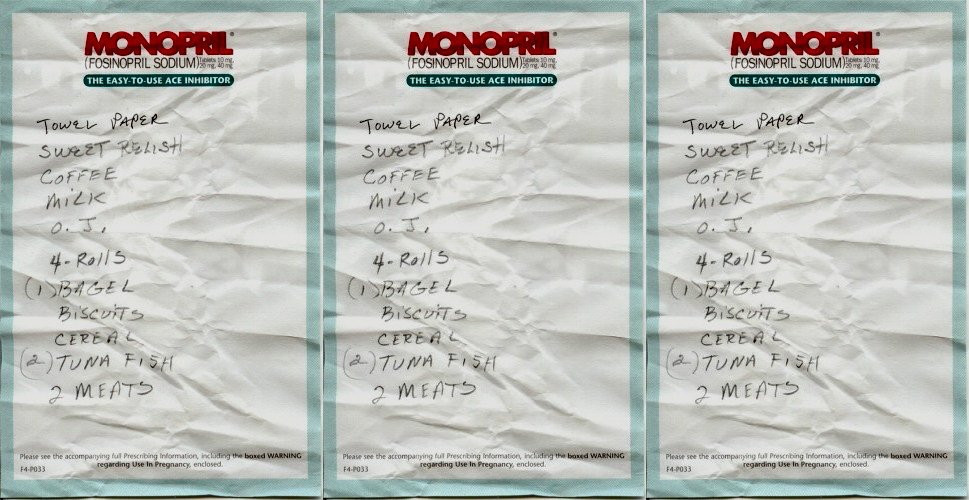 MONOPRIL®
(FOSINOPRIL SODIUM) Tablets 10 mg, 20 mg, 40 mg
THE EASY-TO-USE ACE INHIBITOR
TOWEL PAPER
SWEET RELISH
COFFEE
MiLK
O.J.
4-Rolls
(1) BAGEL
BiSCUiTS
CEREAL
(2) TUNA FISH
2 MEATS
Please see the accompanying full Prescribing Information, including the boxed WARNING
regarding Use In Pregnancy, enclosed.
F4-P033
MONOPRIL®
(FOSINOPRIL SODIUM) Tablets 10 mg, 20 mg, 40 mg
THE EASY-TO-USE ACE INHIBITOR
TOWEL PAPER
SWEET RELISH
COFFEE
MiLK
O.J.
4-Rolls
(1) BAGEL
BiSCUiTS
CEREAL
(2) TUNA FISH
2 MEATS
Please see the accompanying full Prescribing Information, including the boxed WARNING
regarding Use In Pregnancy, enclosed.
F4-P033
MONOPRIL®
(FOSINOPRIL SODIUM) Tablets 10 mg, 20 mg, 40 mg
THE EASY-TO-USE ACE INHIBITOR
TOWEL PAPER
SWEET RELISH
COFFEE
MiLK
O.J.
4-Rolls
(1) BAGEL
BiSCUiTS
CEREAL
(2) TUNA FISH
2 MEATS
Please see the accompanying full Prescribing Information, including the boxed WARNING
regarding Use In Pregnancy, enclosed.
F4-P033